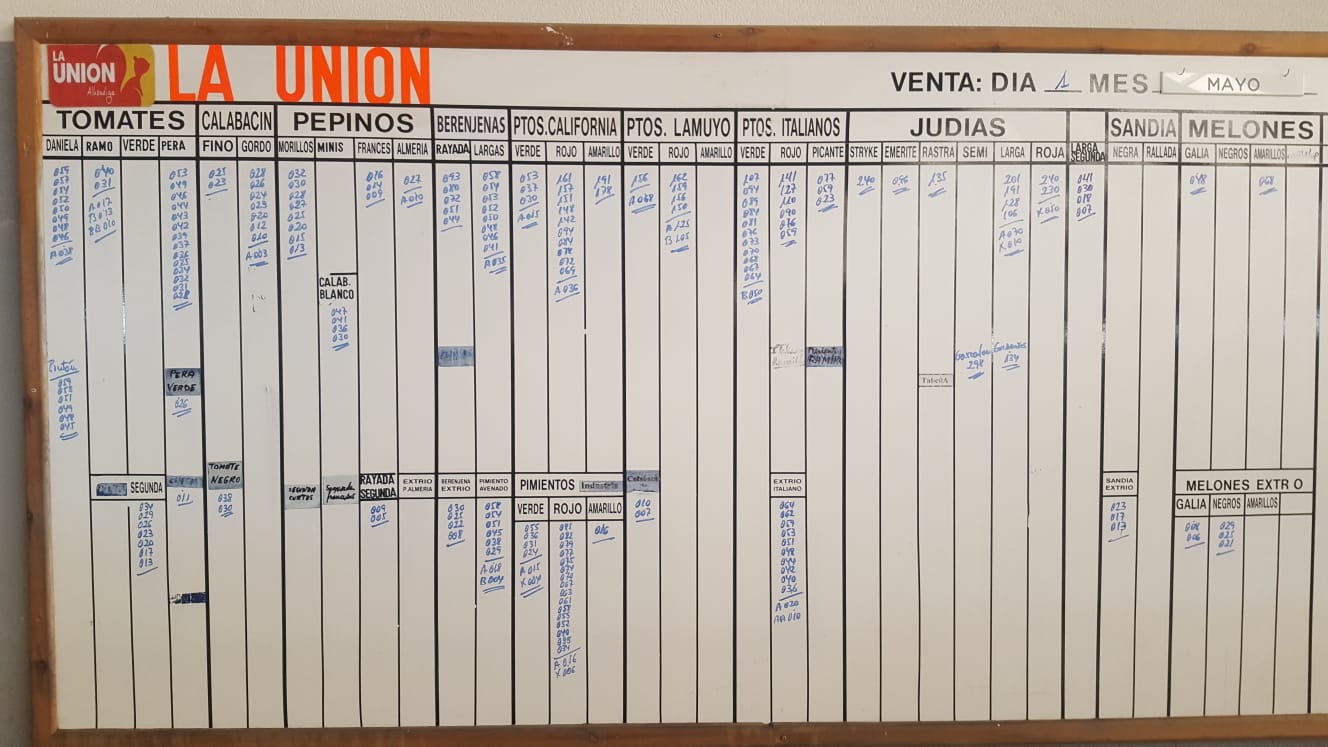 LA
UNION
Alhóndiga
LA UNION
VENTA: DIA 1 MES MAYO
TOMATES
CALABACIN
PEPINOS
BERENJENAS
PTOS.CALIFORNIA
PTOS. LAMUYO
PTOS. ITALIANOS
JUDIAS
SANDIA
MELONES
DANIELA
RAMO
VERDE
PERA
FINO
GORDO
MORILLOS
MINIS
FRANCES
ALMERIA
RAYADA
LARGAS
VERDE
ROJO
AMARILLO
VERDE
ROJO
AMARILLO
VERDE
ROJO
PICANTE
STRYKE
EMERITE
RASTRA
SEMI
LARGA
ROJA
LARGA
SEGUNDA
NEGRA
RALLADA
GALIA
NEGROS
AMARILLOS
059
057
054
052
050
049
048
046
A038
040
031
A017
B013
BB010
053
049
046
044
043
042
039
037
036
025
024
022
021
018
025
023
028
026
024
023
020
012
010
A003
032
030
028
027
025
020
015
013
016
014
009
027
A010
093
080
072
051
044
058
054
053
052
050
048
046
041
A035
053
037
030
A015
161
157
151
148
142
094
084
078
072
069
A036
191
178
156
A068
162
159
156
150
A125
B105
107
094
089
084
081
076
073
070
068
067
064
B050
141
127
110
090
076
059
077
059
023
240
096
135
201
191
128
106
A070
X010
240
230
X050
041
030
018
007
048
068
CALAB.
BLANCO
047
041
036
030
Pintón
059
053
051
049
048
045
PERA
VERDE
026
TabellA
298
034
SEGUNDA
034
029
026
023
020
017
013
011
TOMATE
NEGRO
038
030
SEGUNDA
CORTOS
Segunda
frances
RAYADA
SEGUNDA
009
005
EXTRIO
P.ALMERIA
BERENJENA
EXTRIO
030
025
022
008
PIMIENTO
AVENADO
058
054
051
045
038
029
A018
B004
PIMIENTOS Industria
VERDE
ROJO
AMARILLO
055
036
031
024
A015
X004
091
082
079
077
075
074
070
067
063
061
058
055
052
040
035
034
A016
X006
016
010
007
EXTRIO
ITALIANO
064
062
059
053
051
048
044
042
040
036
A020
AA010
SANDIA
EXTRIO
023
017
013
MELONES EXTRIO
GALIA
NEGROS
AMARILLOS
008
006
029
025
021